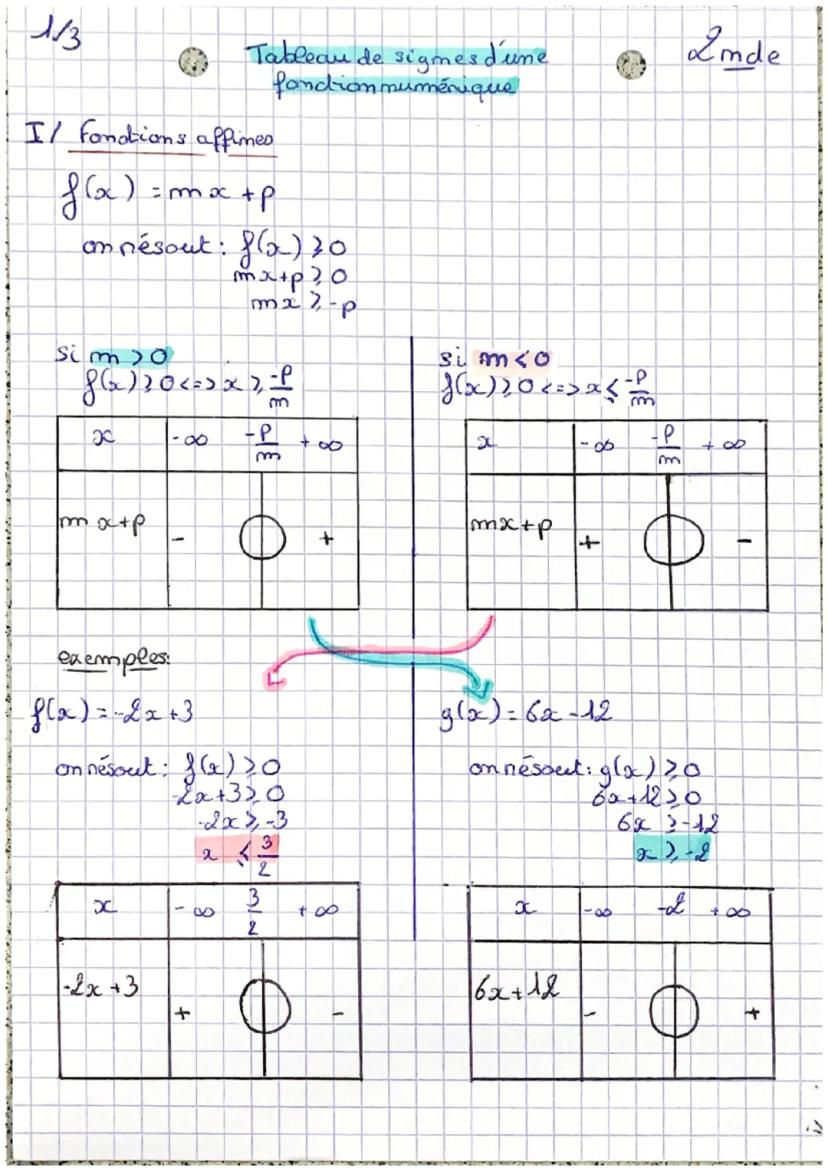 1/3
Tableau de signes d'une
fonction numérique
2nde
I/ Fonctions affines
f(x) = mx + p
on résout : f(x) ⩾ 0
mx+p ⩾ 0
mx ⩾ -p
si m > 0
f(x) ⩾ 0 <=> x ⩾ -p/m
x -∞ -p/m +∞
mx+p - 0 +
si m < 0
f(x) ⩾ 0 <=> x ⩽ -p/m
x -∞ -p/m +∞
mx+p + 0 -
exemples:
f(x) = -2x+3
on résout : f(x) ⩾ 0
-2x+3 ⩾ 0
-2x ⩾ -3
x ⩽ 3/2
x -∞ 3/2 +∞
-2x+3 + 0 -
g(x) = 6x -12
on résout : g(x) ⩾ 0
6x+12 ⩾ 0
6x ⩾ -12
x ⩾ -2
x -∞ -2 +∞
6x+12 - 0 +